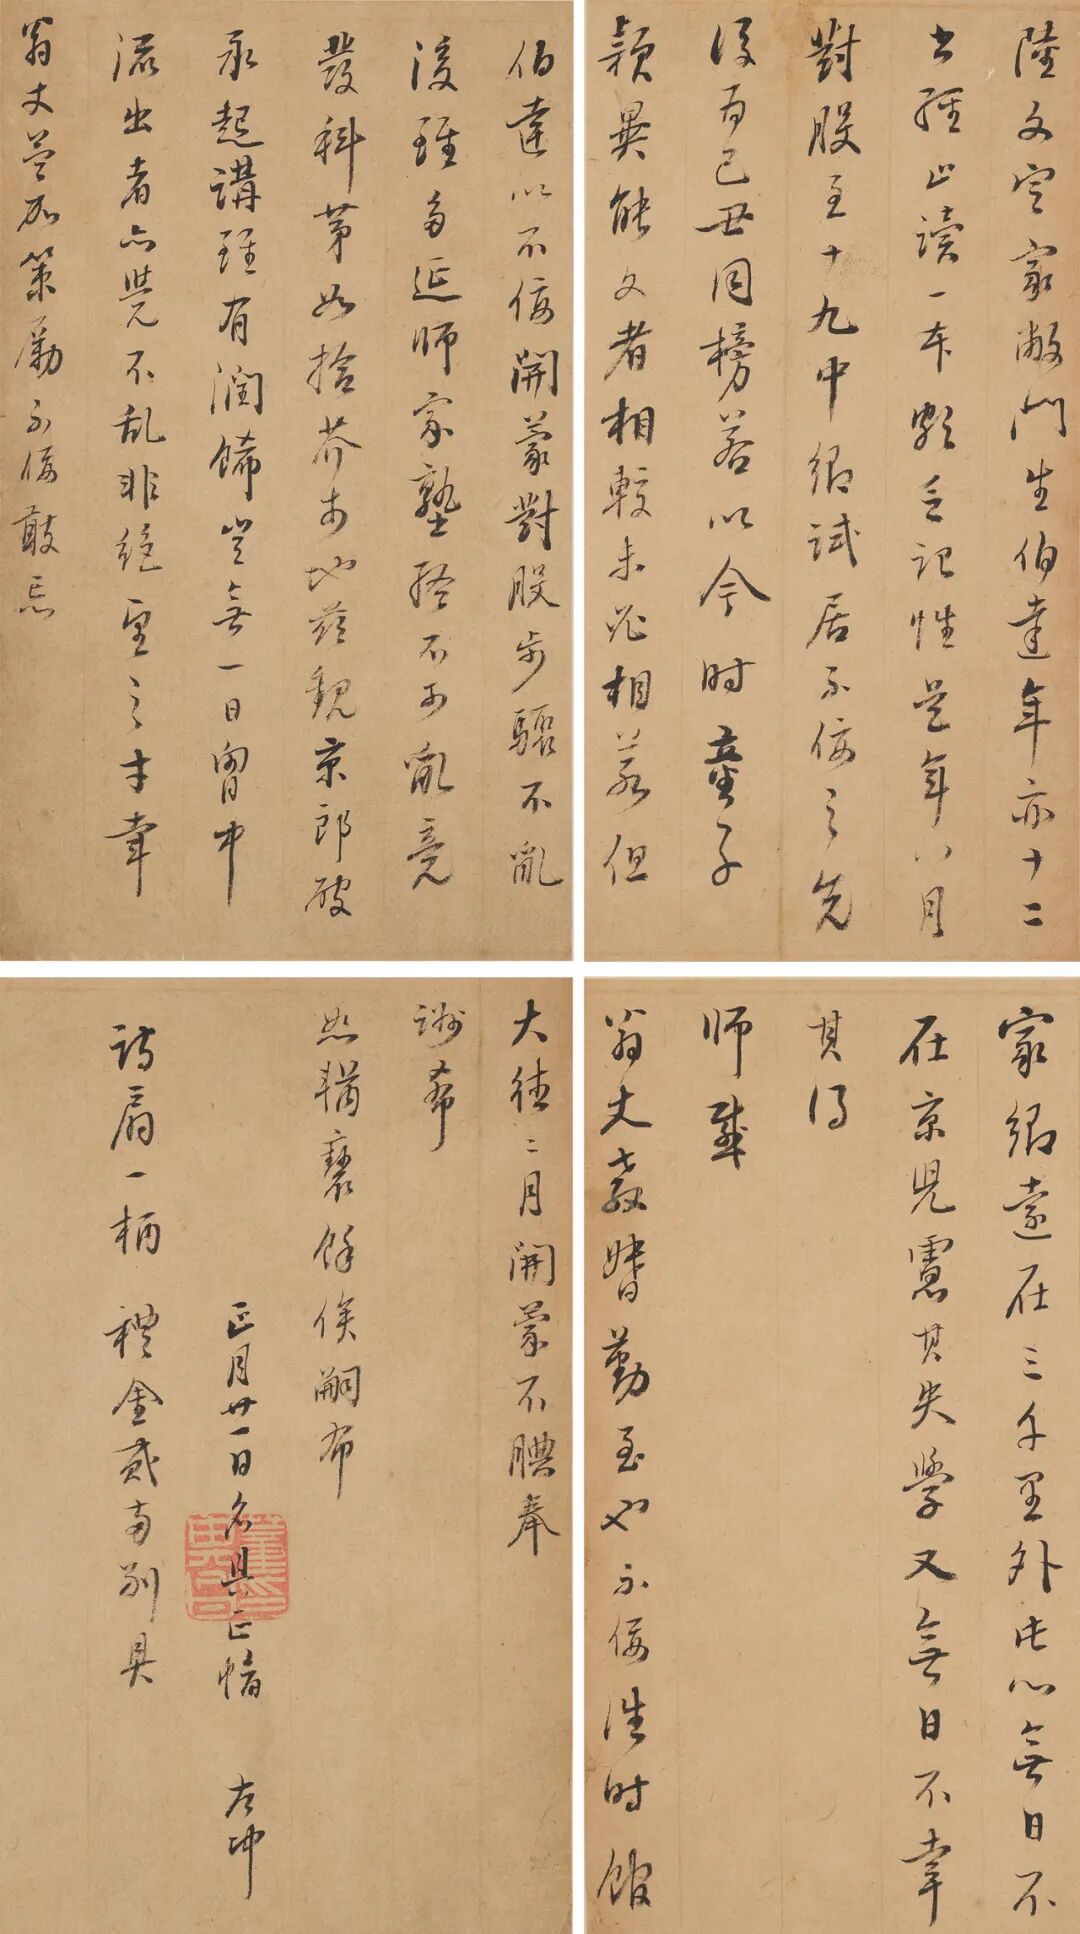 家鄉遠在三千里外此心無日不
在京兒慮其失學又無日不幸
其得
師承
翁丈教督勤至也不佞往時館
陸文定家敝門生伯達年亦十二
書經止讀一本頗乏記性是年八月
對股至十九中鄉試居不佞之先
後爲己丑同榜若以今時童子
穎異能文者相較未必相若但
伯達以不佞開蒙對股步驟不亂
後雖多延師家塾終不可亂竟
發科第如拾芥於地茲觀京郎破
承起講雖有潤餙豈無一日胷中
流出者亦覺不乱非絕望之才幸
翁丈益加策勵不佞敢忘
大德二月開蒙不腆奉
謝希
照餘俟嗣布
正月廿一日名具正幅 左冲
詩扇一柄 禮金貳兩別具